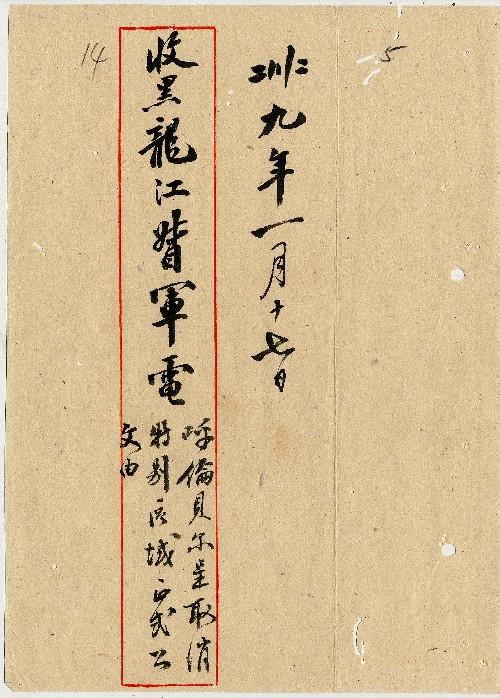 5
九年一月十七日
14
收黑龍江督軍電
呼倫貝尔呈取消
特别区域正式公
文由